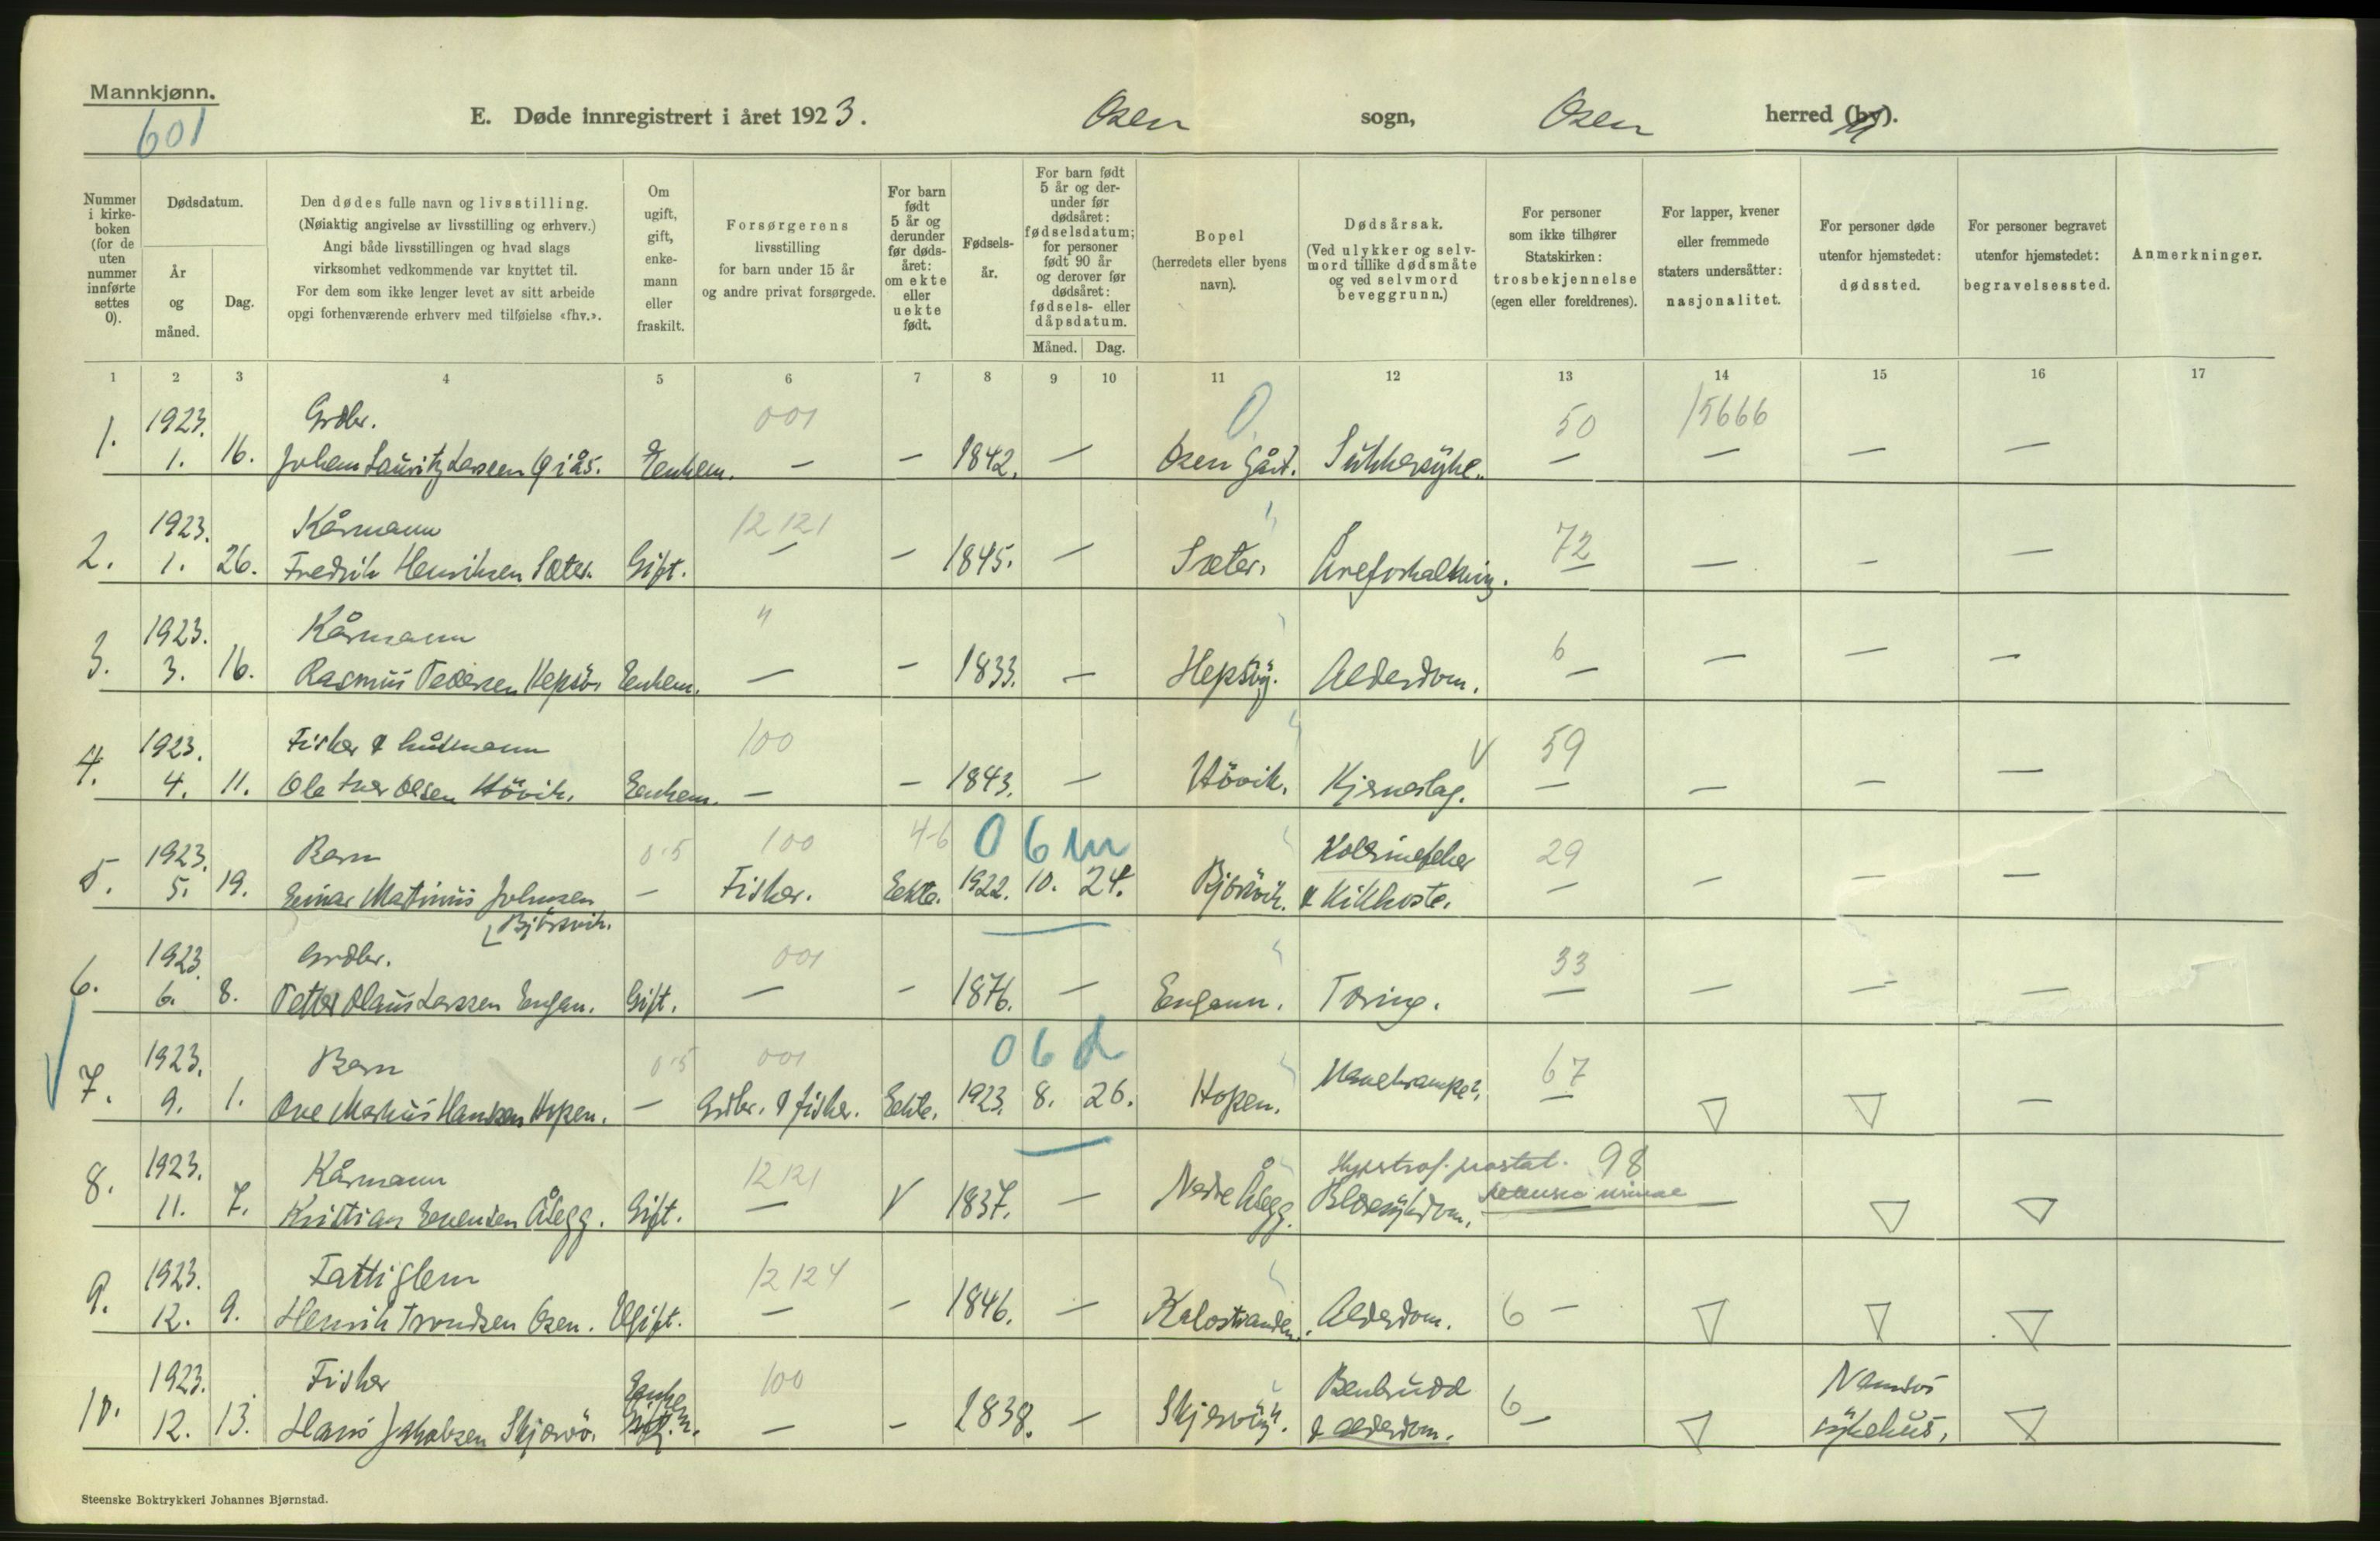 Mannkjønn.
601
E. Døde innregistrert i året 1923. Osen sogn, Osen herred (by).
Nummer i kirke-boken (for de uten nummer innførte settes 0).
Dødsdatum.
År og måned.
Dag.
Den dødes fulle navn og livsstilling.
(Nøiaktig angivelse av livsstilling og erhverv.)
Angi både livsstillingen og hvad slags
virksomhet vedkommende var knyttet til.
For dem som ikke lenger levet av sitt arbeide
opgi forhenværende erhverv med tilføielse «fhv.».
Om ugift, gift, enke-mann eller fraskilt.
Forsørgerens livsstilling for barn under 15 år og andre privat forsørgede.
For barn født 5 år og derunder før døds-året: om ekte eller uekte født.
Fødsels-år.
For barn født 5 år og der-under før dødsåret: fødselsdatum; for personer født 90 år og derover før dødsåret: fødsels- eller dåpsdatum.
Måned. Dag.
Bopel (herredets eller byens navn).
Dødsårsak. (Ved ulykker og selv-mord tillike dødsmåte og ved selvmord beveggrunn.)
For personer som ikke tilhører Statskirken: trosbekjennelse (egen eller foreldrenes).
For lapper, kvener eller fremmede staters undersåtter: nasjonalitet.
For personer døde utenfor hjemstedet: dødssted.
For personer begravet utenfor hjemstedet: begravelsessted.
Anmerkninger.
1 2 3 4 5 6 7 8 9 10 11 12 13 14 15 16 17
1923. Grdbr. 001 0 50 15666
1. 1. 16. Johan Lauritz Larssen Qiås. Enkem. — — 1842. — Osen gård. Sukkersyke. — — — —
1923. Kårmann 12121 " 72
2. 1. 26. Fredrik Henriksen Sæter. Gift. — — 1845. — Sæter. Åreforkalkning. — — — —
1923. Kårmann " 6
3. 3. 16. Rasmus Pedersen Hepsö. Enkem. — — 1833. — Hepsöy. Alderdom. — — — —
1923. Fisker & husmann 100 V 59
4. 4. 11. Ole Iver Olsen Hövik. Enkem. — — 1843. — Hövik. Hjerneslag. — — — —
1923. Barn 0-5 100 4-6 0 6 m Kolerinefeber 29
5. 5. 19. Einar Matinius Johnsen — Fisker. Eekte. 1922. 10. 24. Björsvik. & Kikhoste. — — — —
Björsvik.
1923. Grdbr. 001 33
6. 6. 8. Petter Olaus Larssen Engan. Gift. — — 1876. — Engann. Tæring. — — — —
1923. Barn 0-5 001 0 6 d 67
7. 9. 1. Ove Markus Hanssen Hopen. — Grdbr. & fisker. Eekte. 1923. 8. 26. Hopen. Mavekrampe? — —
1923. Kårmann 12121 Hypertrof. prostat. 98
8. 11. 7. Kristian Evensen Ålegg. Gift. — V 1837. — Nedre Ålegg. Blæresykdom. retensio urinae —
1923. Fattiglem 12124
9. 12. 9. Henrik Trondsen Osen. Ugift. — — 1846. — Kolostranden. Alderdom. 6 —
1923. Fisker Enkem. 100 Benbrudd 6 Namsos
10. 12. 13. Hans Jakobsen Skjærvö. — — 1838. — Skjervöy. & alderdom. — sykehus.
Steenske Boktrykkeri Johannes Bjørnstad.